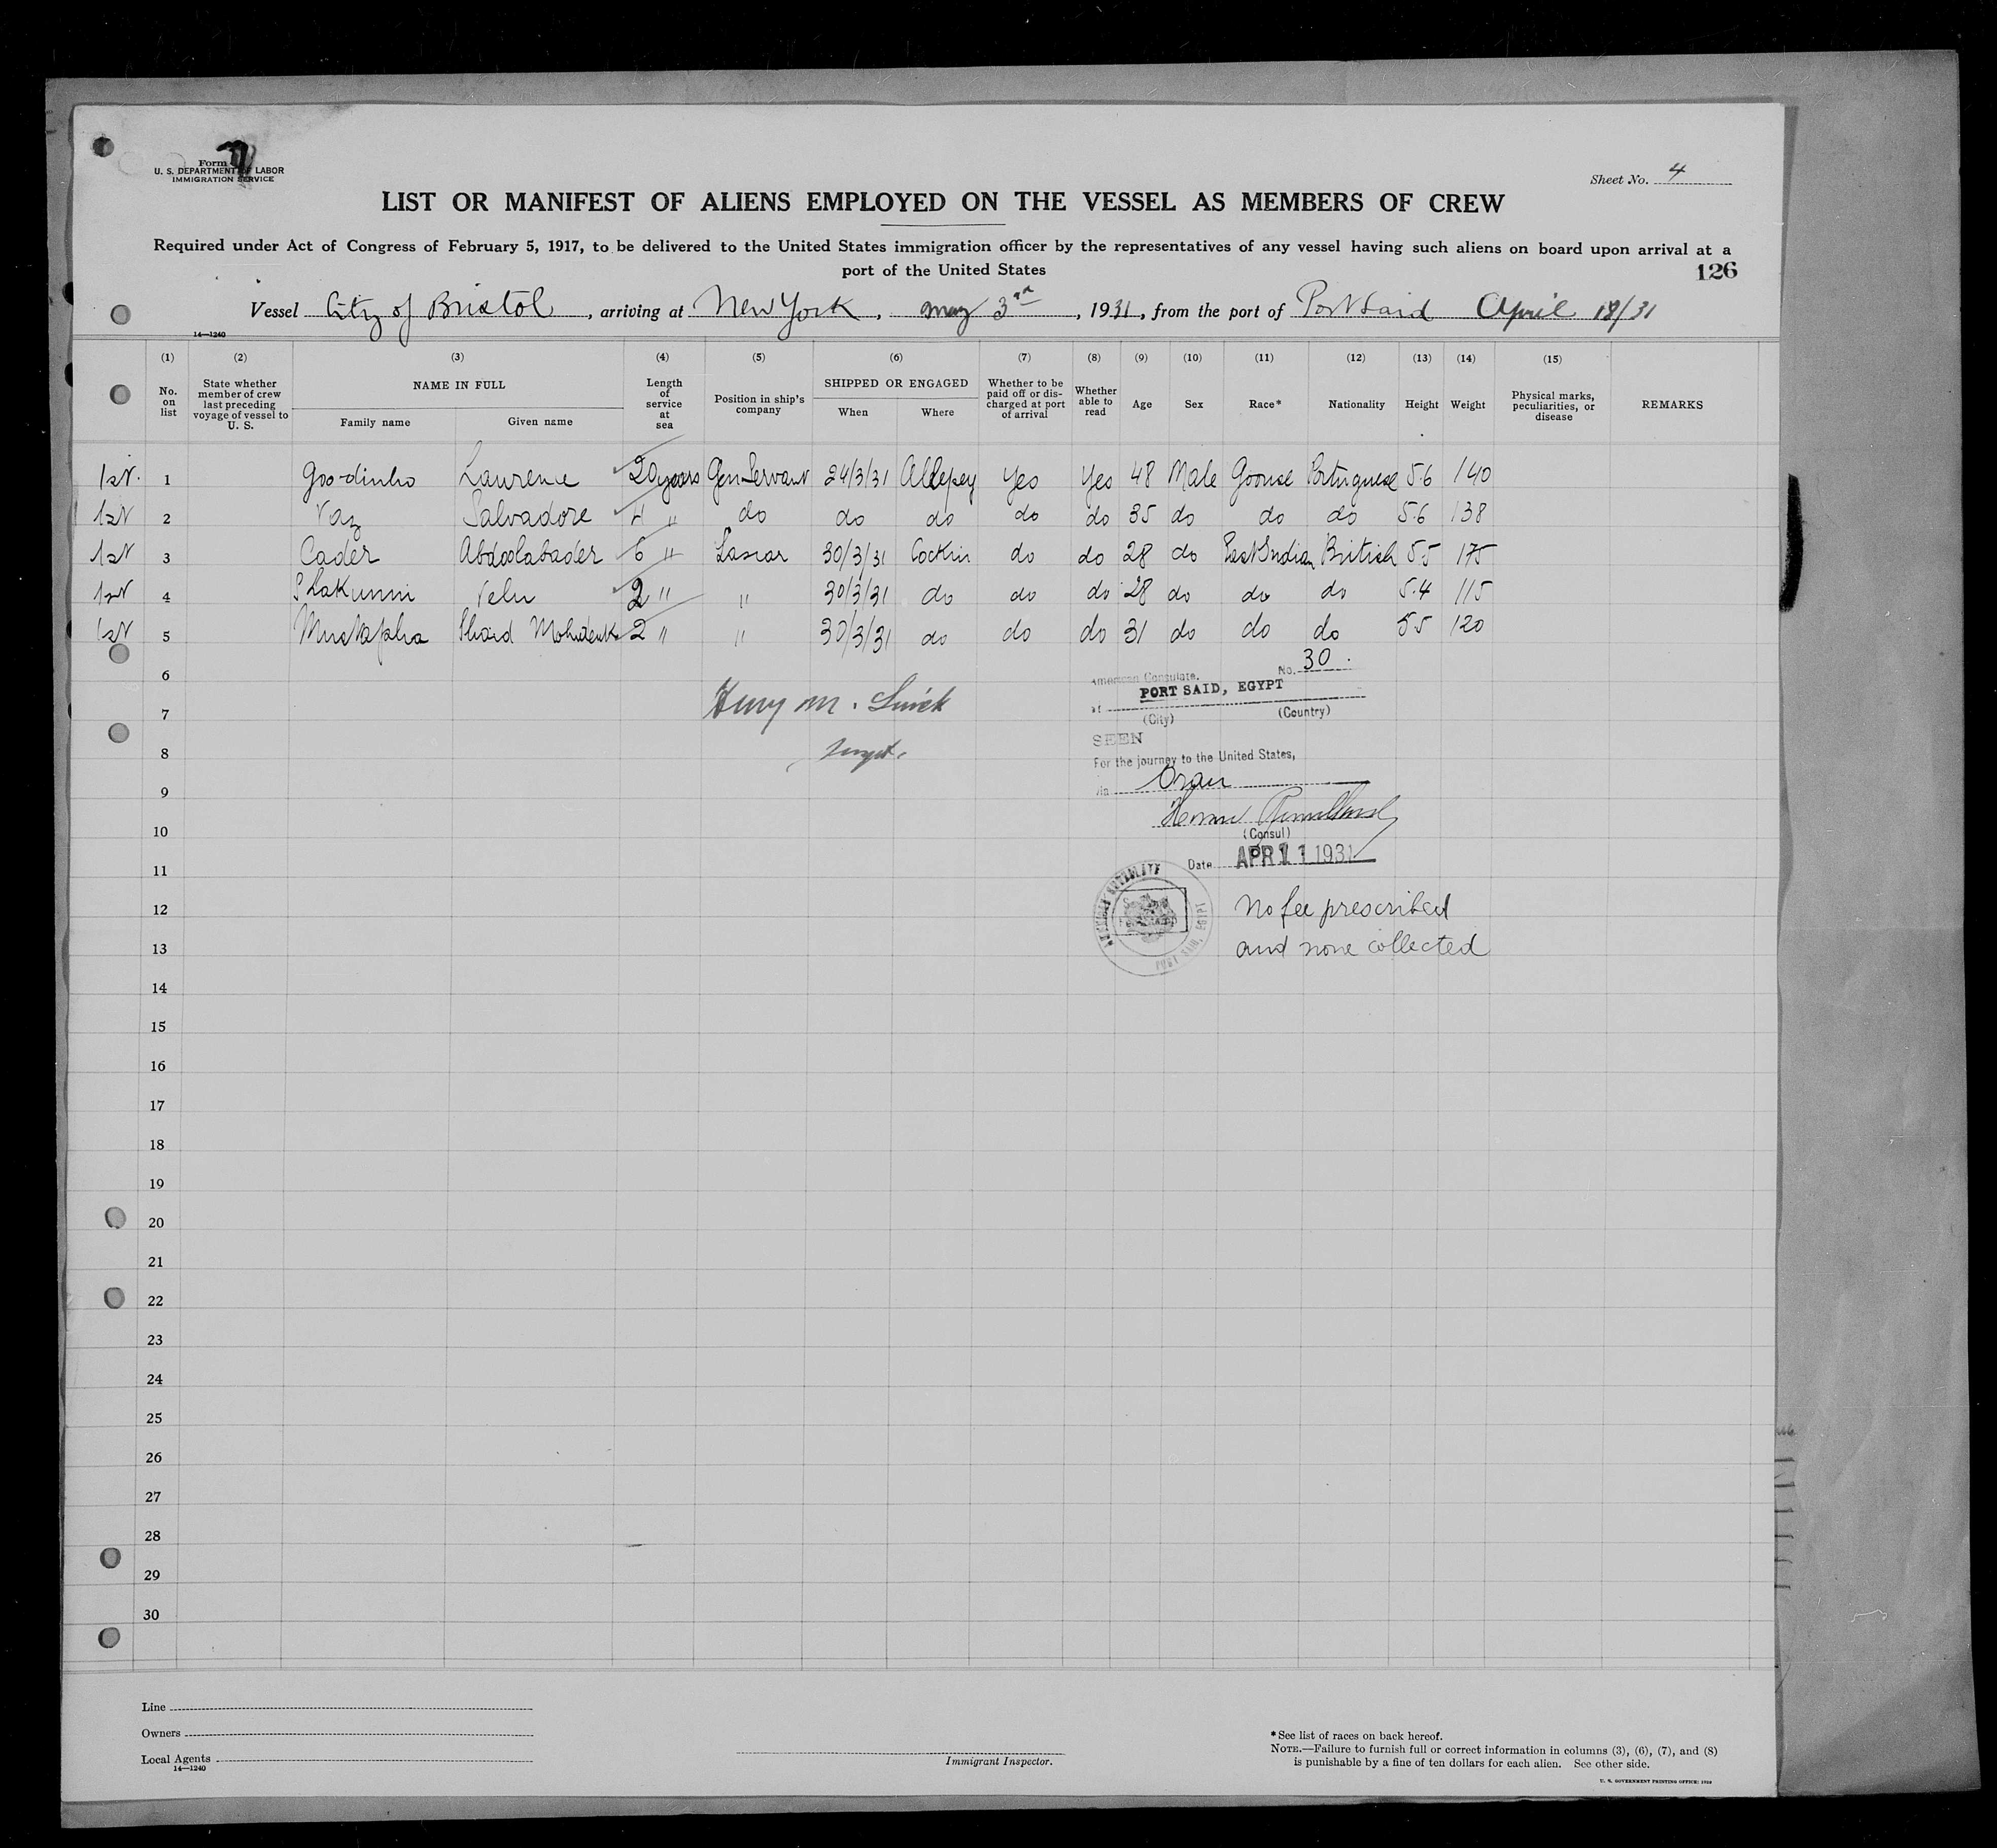 Form
U. S. DEPARTMENT OF LABOR
IMMIGRATION SERVICE
Sheet No. 4
LIST OR MANIFEST OF ALIENS EMPLOYED ON THE VESSEL AS MEMBERS OF CREW
Required under Act of Congress of February 5, 1917, to be delivered to the United States immigration officer by the representatives of any vessel having such aliens on board upon arrival at a
port of the United States
126
Vessel City of Bristol, arriving at New York, May 3rd, 1931, from the port of Port Said April 18/31
14—1240
(1) (2) (3) (4) (5) (6) (7) (8) (9) (10) (11) (12) (13) (14) (15)
No. on list State whether member of crew last preceding voyage of vessel to U. S. NAME IN FULL Family name Given name Length of service at sea Position in ship's company SHIPPED OR ENGAGED When Where Whether to be paid off or discharged at port of arrival Whether able to read Age Sex Race* Nationality Height Weight Physical marks, peculiarities, or disease REMARKS
1st. 1 Goodinho Laurence 20 years Gen Servant 24/3/31 Allepey Yes Yes 48 Male Goonse Portuguese 5.6 140
1st 2 Vaz Salvadore 4 " do do do do do 35 do do do 5.6 138
1st 3 Cader Abdoolabader 6 " Lascar 30/3/31 Cochin do do 28 do East Indian British 5.5 175
1st 4 Velu 2 " " 30/3/31 do do do 28 do do do 5.4 115
1st 5 Mustapha 2 " " 30/3/31 do do do 31 do do do 5.5 120
6
7
8
9
10
11
12
13
14
15
16
17
18
19
20
21
22
23
24
25
26
27
28
29
30
Henry M.
No. 30.
American Consulate.
at PORT SAID, EGYPT
(City) (Country)
SEEN
For the journey to the United States,
via Oran
(Consul)
Date APR 11 1931
No fee prescribed
and none collected
AMERICAN CONSULATE
PORT SAID, EGYPT
Line
Owners
Local Agents
14—1240
Immigrant Inspector.
*See list of races on back hereof.
NOTE.—Failure to furnish full or correct information in columns (3), (6), (7), and (8)
is punishable by a fine of ten dollars for each alien. See other side.